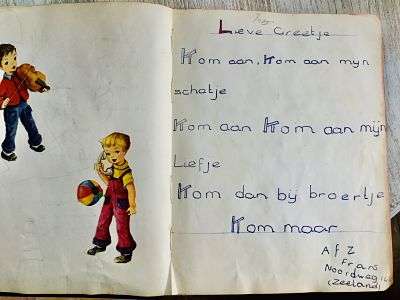 Lieve Greetje
Kom aan, Kom aan mijn
schatje
Kom aan Kom aan mijn
Liefje
Kom dan bij broertje
Kom maar
A f Z
Frans
Noordweg
(Zeeland)